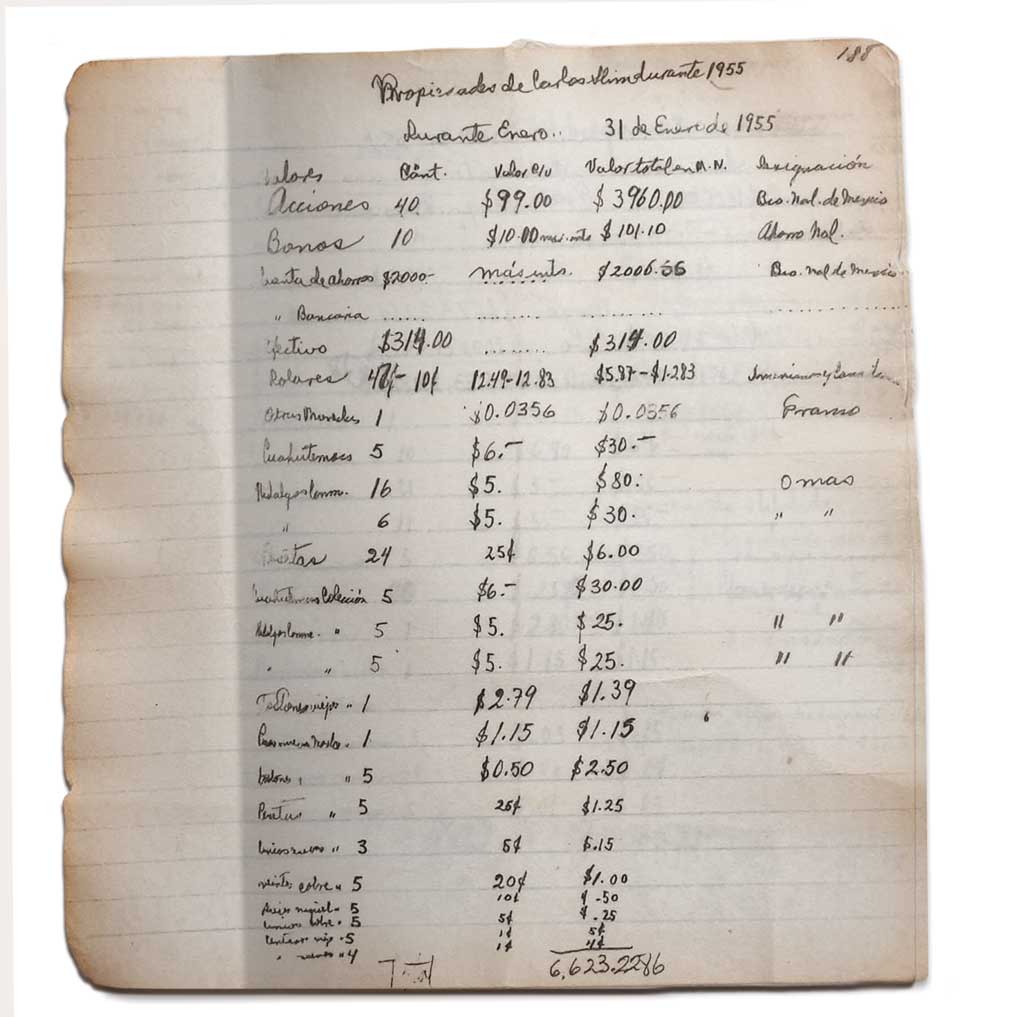 188
Propiedades de Carlos Slim durante 1955
Durante Enero.. 31 de Enero de 1955
Valores Cant. Valor c/u Valor total en M.N. Designación
Acciones 40. $99.00 $3960.00 Bco. Nal. de Mexico
Bonos 10 $10.00 $101.10 Ahorro Nal.
Cuenta de ahorros $2000- más ints. $2006.56 Bco. Nal de Mexico
" Bancaria ...... ....... ........ ............
Efectivo $314.00 ....... $314.00
Dolares 47¢- 10¢ 12.49-12.83 $5.87-$1.283
Otras Monedas 1 $0.0356 $0.0356 Franco
Cuahutemocs 5 $6.- $30.-
Hidalgos Conm. 16 $5. $80. Omas
" 6 $5. $30. " "
Pesetas 24 25¢ $6.00
Cuahutemocs Colección 5 $6.- $30.00
Hidalgos Conm. " 5 $5. $25. " "
" " 5 $5. $25. " "
Tostones viejos " 1 $2.79 $1.39
" 1 $1.15 $1.15
" 5 $0.50 $2.50
" 5 25¢ $1.25
" 3 5¢ $.15
veintes cobre " 5 20¢ $1.00
niquel " 5 10¢ $.50
cobre " 5 5¢ $.25
" 5 1¢ 5¢
" nuevos " 4 1¢ 4¢
Total 6,623.2286